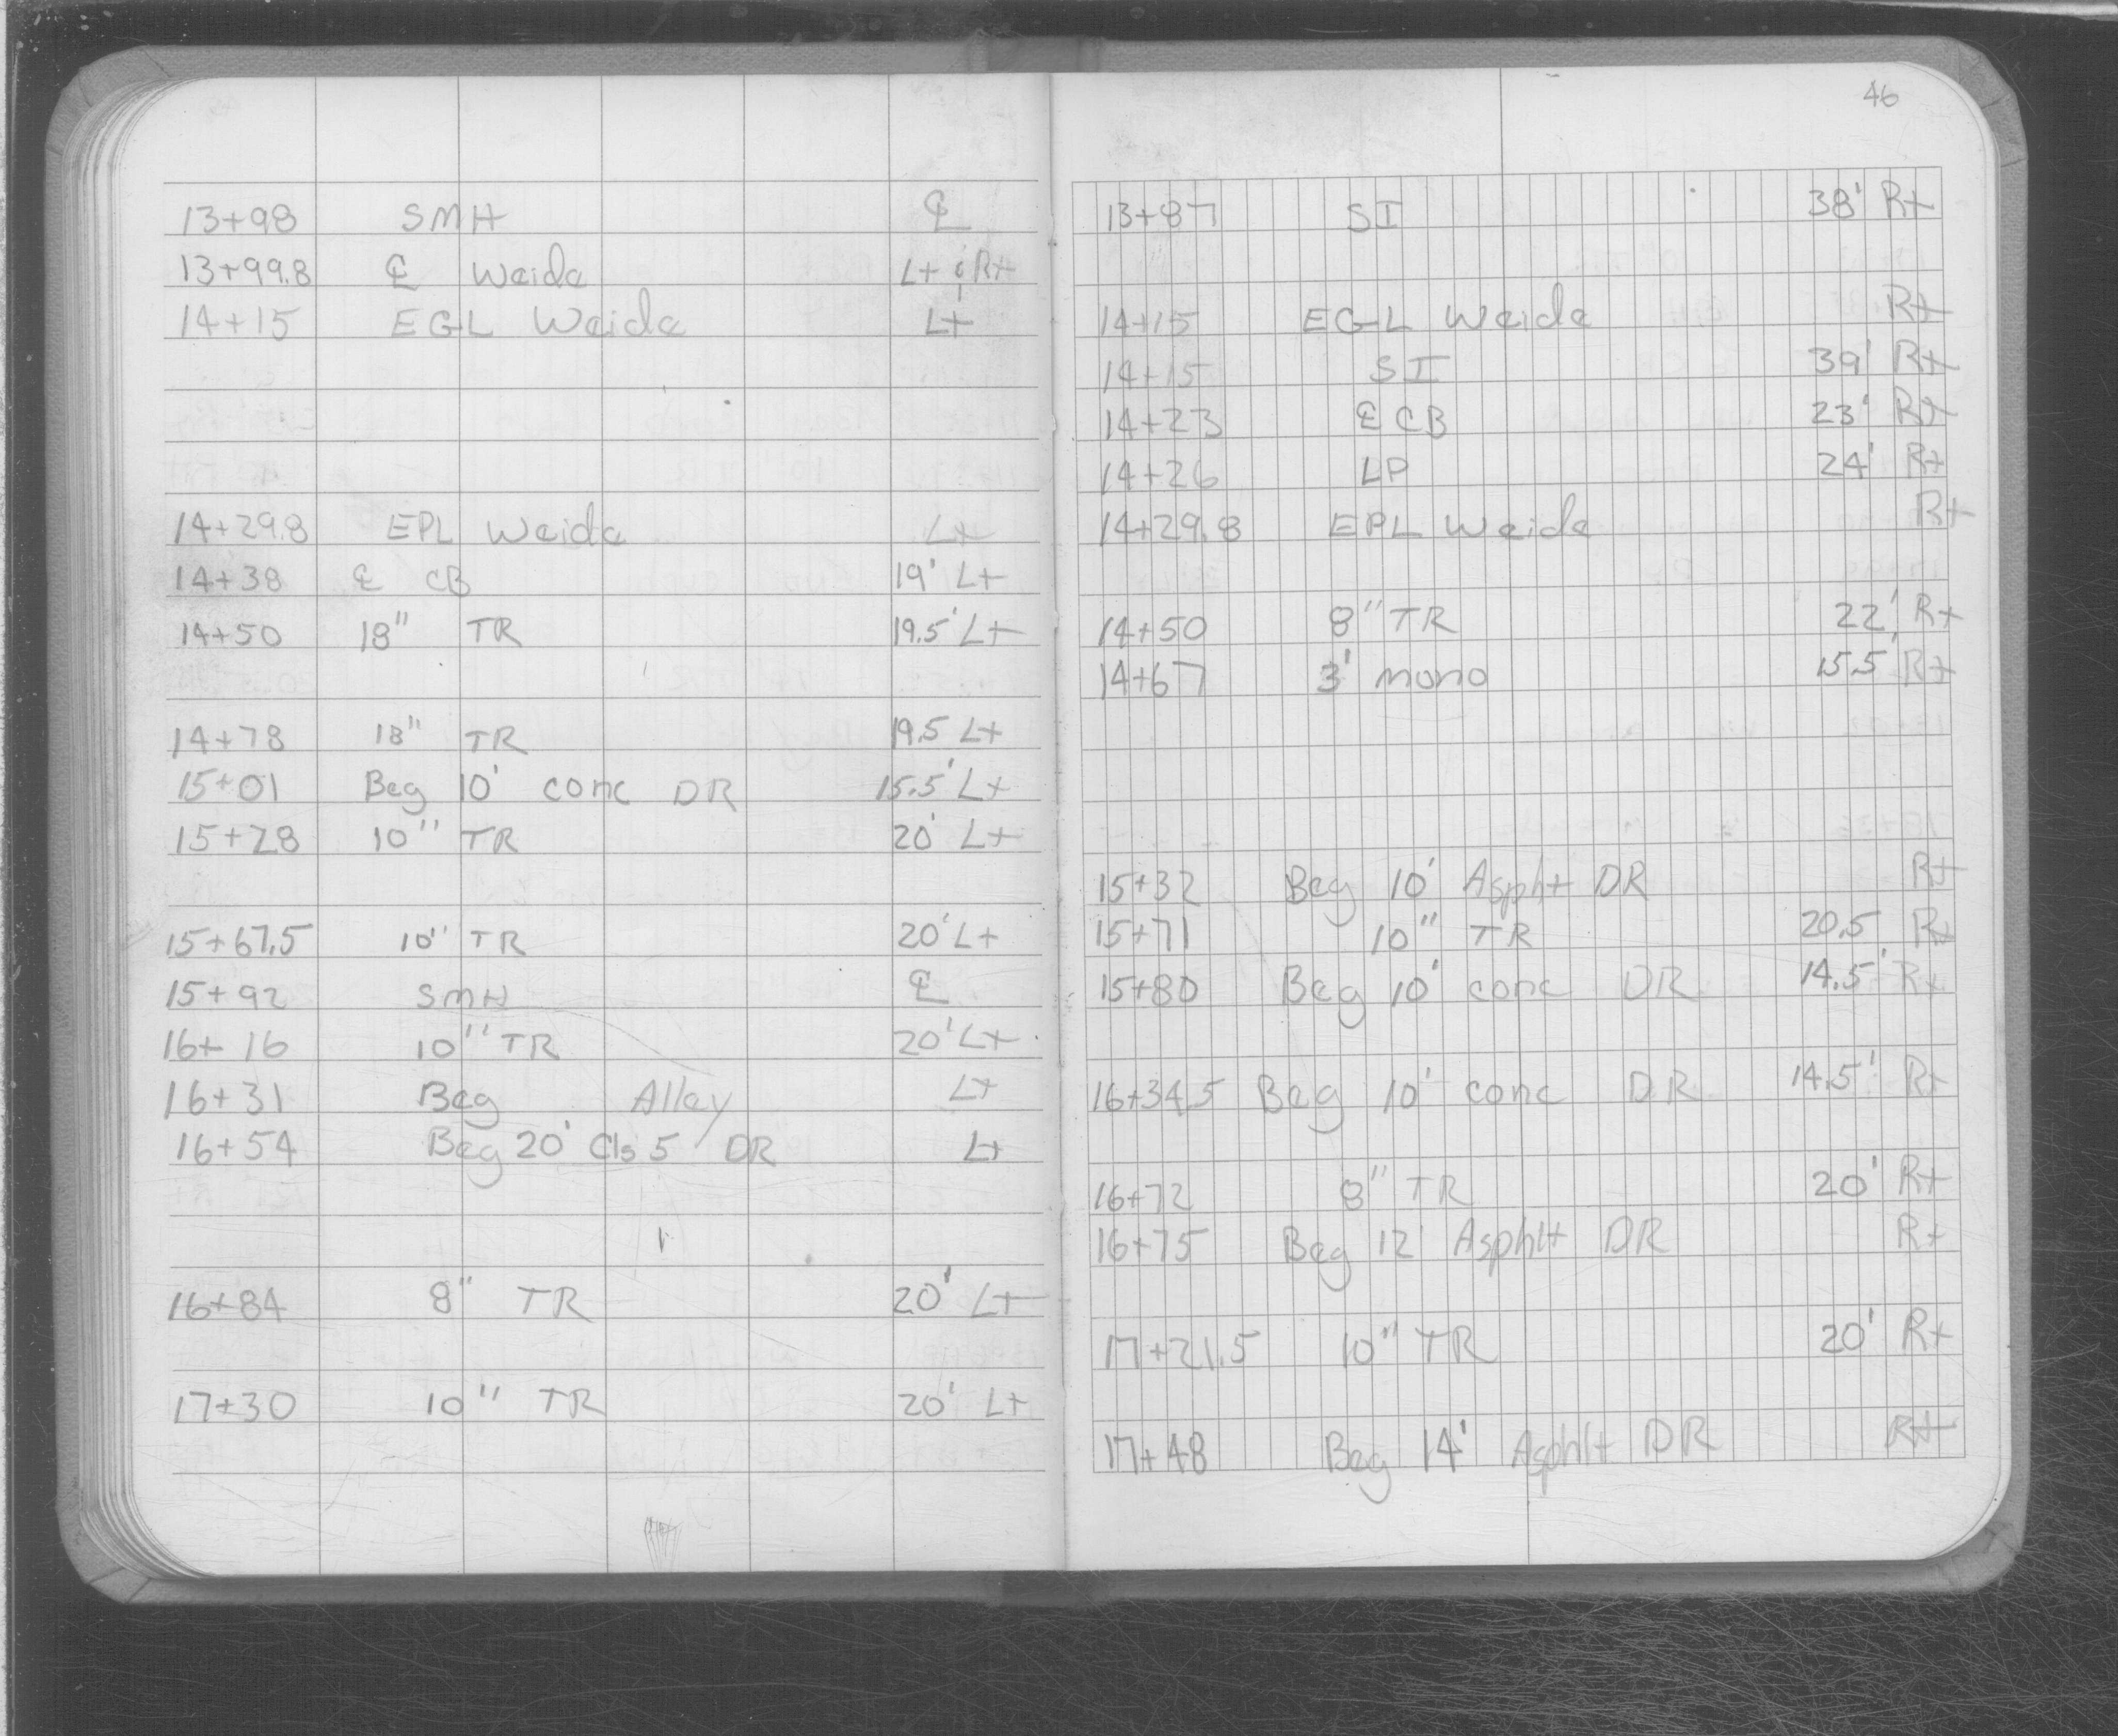 13+98 SMH ℄
13+99.8 ℄ Weida Lt & Rt
14+15 EGL Weida Lt
14+29.8 EPL Weida Lt
14+38 ℄ CB 19' Lt
14+50 18" TR 19.5' Lt
14+78 18" TR 19.5 Lt
15+01 Beg 10' conc DR 15.5' Lt
15+28 10" TR 20' Lt
15+67.5 10" TR 20' Lt
15+92 SMH ℄
16+16 10" TR 20' Lt
16+31 Beg Alley Lt
16+54 Beg 20' Cls 5 DR Lt
16+84 8" TR 20' Lt
17+30 10" TR 20' Lt
46
13+87 SI 38' Rt
14+15 EGL Weida Rt
14+15 SI 39' Rt
14+23 ℄ CB 23' Rt
14+26 LP 24' Rt
14+29.8 EPL Weida Rt
14+50 8" TR 22' Rt
14+67 3' mono 15.5' Rt
15+32 Beg 10' Asphlt DR Rt
15+71 10" TR 20.5 Rt
15+80 Beg 10' conc DR 14.5' Rt
16+34.5 Beg 10' conc DR 14.5' Rt
16+72 8" TR 20' Rt
16+75 Beg 12' Asphlt DR Rt
17+21.5 10" TR 20' Rt
17+48 Beg 14' Asphlt DR Rt